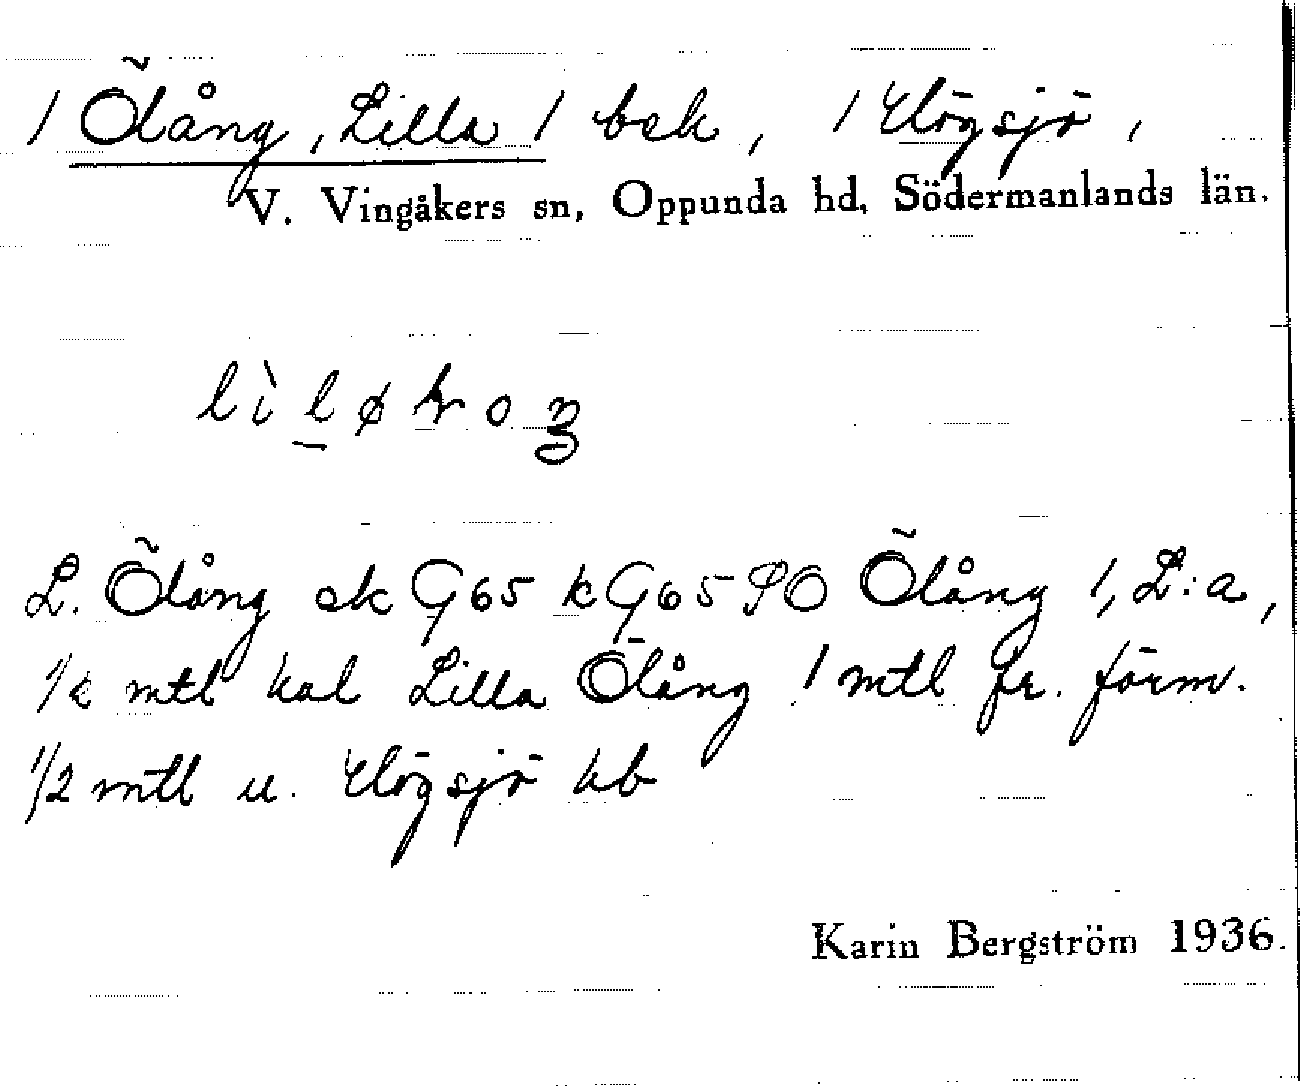 / Ölång, Lilla / bek, / Högsjö,
V. Vingåkers sn, Oppunda hd, Södermanlands län.
L. Ölång ek G65 k G65 SO Ölång 1, L:a,
mtl kal Lilla Ölång 1 mtl fr. förm.
1/2 mtl u. Högsjö hb
Karin Bergström 1936.